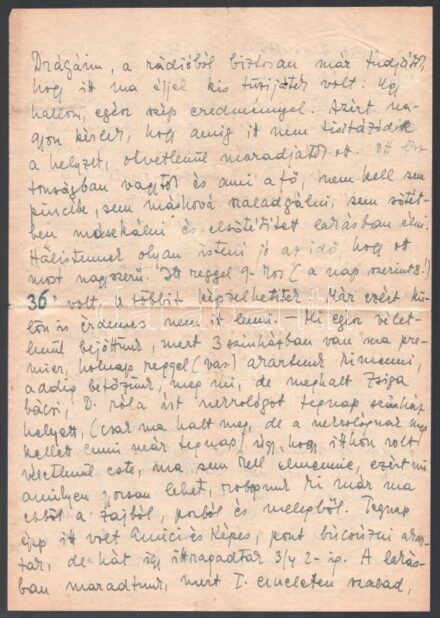 Drágáim, a rádióból biztosan már tudjátok,
hogy itt ma éjjel kis tüzijáték volt. Ugy
hallom, egész szép eredménnyel. Azért na-
gyon kérlek, hogy amig itt nem tisztázódik
a helyzet, okvetlenül maradjatok ott. Ott biz-
tonságban vagytok és ami a fő, nem kell sem
pincébe, sem máshová szaladgálni, sem sötét-
ben mászkálni és elsötétitett lakásban élni.
Hálistennek olyan isteni jó az idő, hogy ott
most nagyszerű. Itt reggel 9-kor (a nap szerint 8!)
36° volt, a többit képzelhetitek. Már ezért kü-
lön is érdemes nem itt lenni. — Mi egész vélet-
lenül bejöttünk, mert 3 szinházban van ma pre-
mier, holnap reggel (vas) akartunk kimenni,
addig befőzünk, meg mi, de meghalt Zsiga
bácsi, D. róla irt nekrológot tegnap szinház
helyett, (csak ma halt meg, de a nekrológnak meg
kellett lenni már tegnap) ugy, hogy itthon volt
véletlenül este, ma sem kell elmennie, ezért mi
amilyen gyorsan lehet, robogunk ki már ma
ebből a zajból, porból és melegből. Tegnap
épp itt volt Emici és Képes, pont bucsuzni akar-
tak, de hát igy ittragadtak 3/4 2-ig. A lakás-
ban maradtunk, mert I. emeleten szabad,